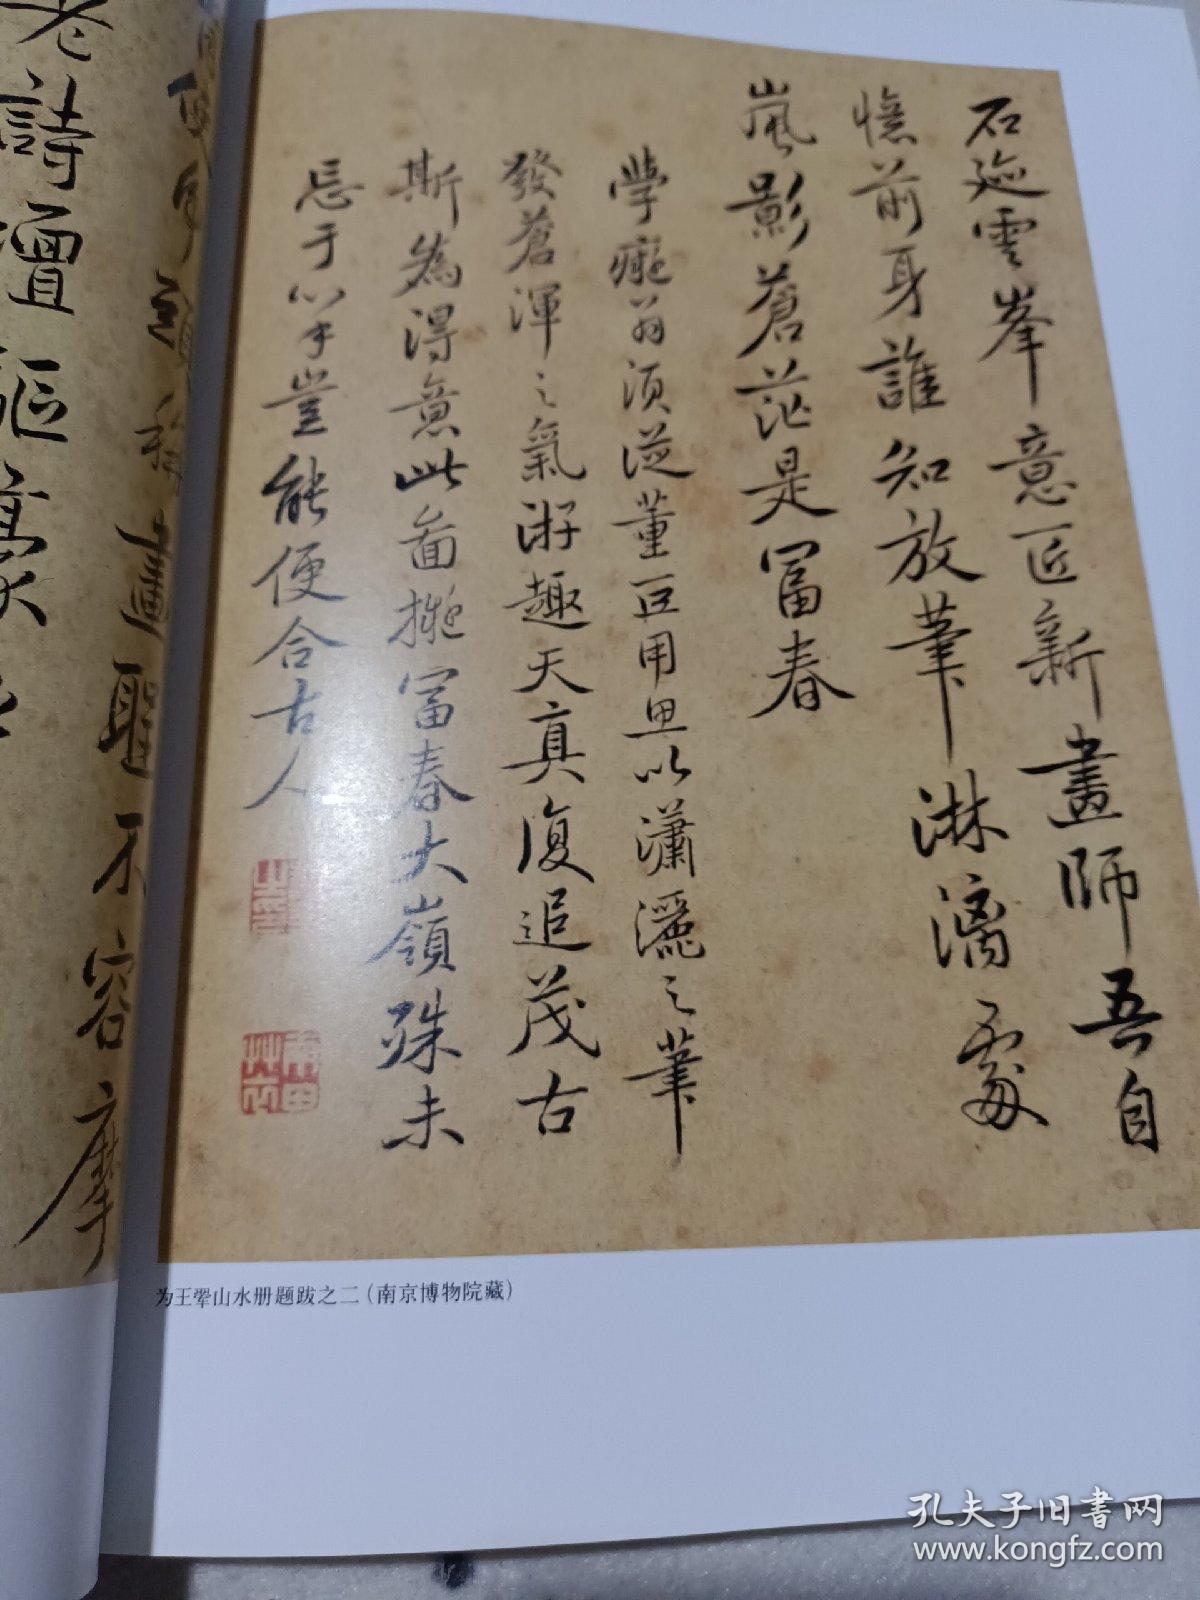 石迹雲峯意匠新畫師吾自
憶前身誰知放筆淋漓處
嵐影蒼茫是富春
學癡翁須從董巨用思以瀟灑之筆
發蒼渾之氣游趣天真復追茂古
斯為得意此圖擬富春大嶺殊未
忘于心手豈能便合古人
南田
草衣
老詩壇
畫聖不容摩
为王翚山水册题跋之二(南京博物院藏)
孔夫子旧书网
www.kongfz.com